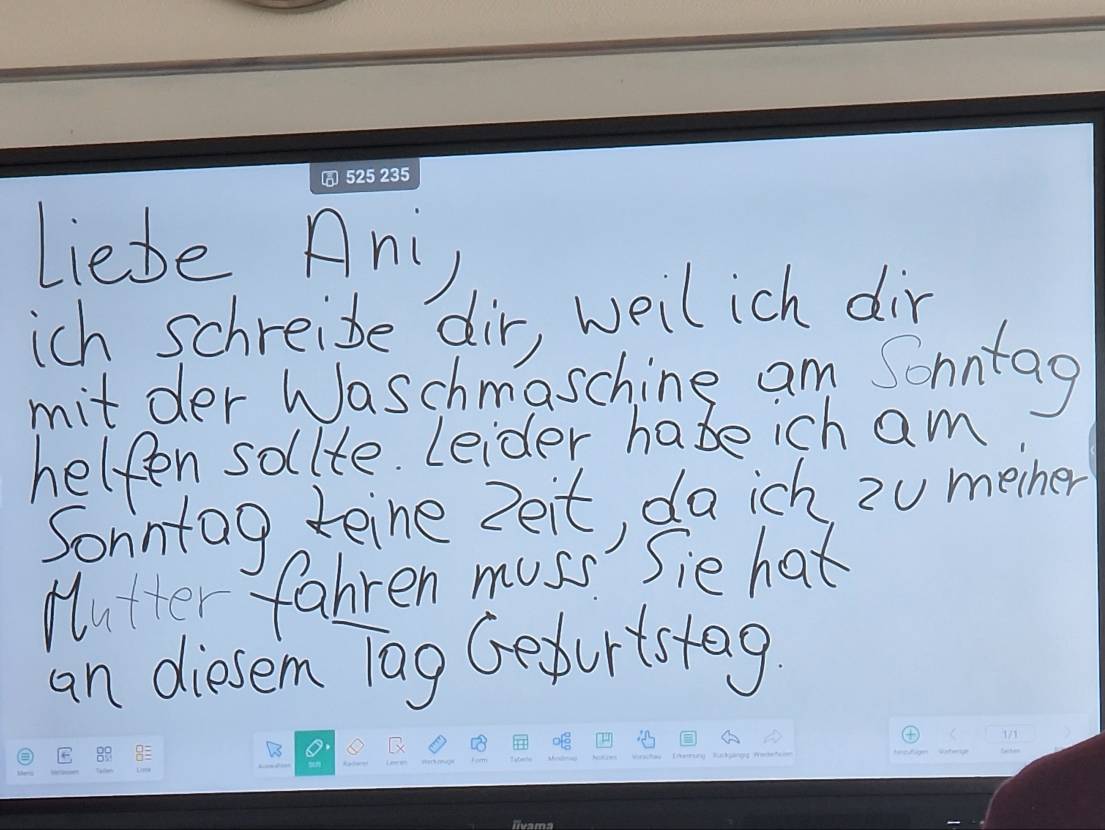 525 235
Liebe Ani,
ich schreibe dir, weil ich dir
mit der Waschmaschine am Sonntag
helfen sollte. Leider habe ich am
Sonntag keine Zeit, da ich zu meiner
Mutter fahren muss. Sie hat
an diesem Tag Geburtstag.
Menü Verlassen Teilen Liste Auswählen Stift Radierer Leeren Werkzeuge Form Tabelle Mindmap Notizen Vorschau Erkennung Rückgängig Wiederholen Hinzufügen Vorherige 1/1 Seiten
iiyama